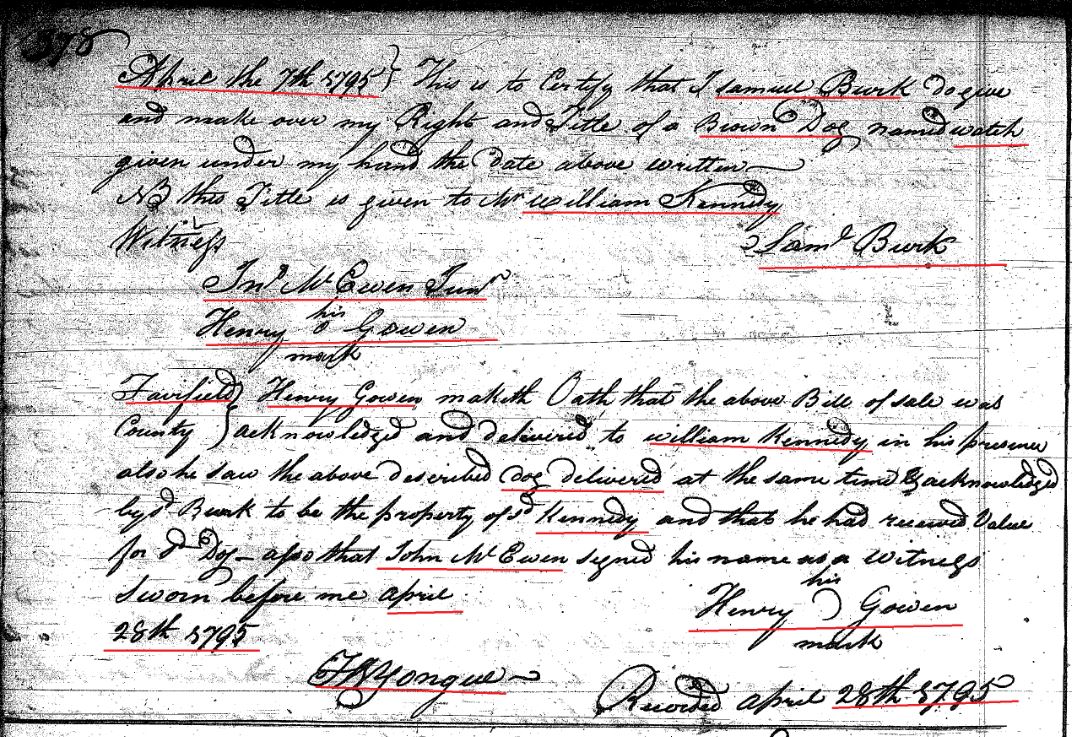 398
April the 7th 1795 } This is to Certify that I samuel Burk do give
and make over my Right and Title of a Brown Dog named watch
given under my hand the date above written
NB this Title is given to Mr william Kennedy
Witness Saml Burk
Jno McEwen Junr
his
Henry o Gowen
mark
Fairfield } Henry Gowen maketh Oath that the above Bill of sale was
County } acknowledged and delivered to william Kennedy in his presence
also he saw the above described dog delivered at the same time & acknowledged
by sd Burk to be the property of sd Kennedy and that he had received Value
for sd Dog – also that John McEwen signed his name as a Witness
Sworn before me april his
28th 1795 Henry ) Gowen
mark
Yongue
Recorded april 28th 1795